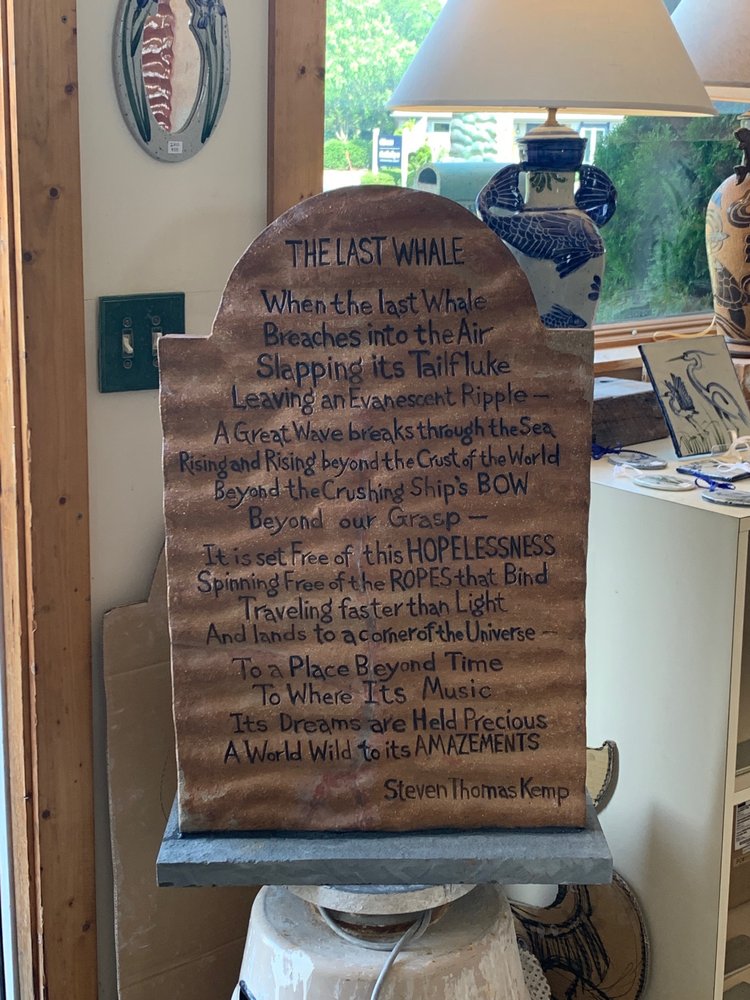 THE LAST WHALE
When the last Whale
Breaches into the Air
Slapping its Tailfluke
Leaving an Evanescent Ripple —
A Great Wave breaks through the Sea
Rising and Rising beyond the Crust of the World
Beyond the Crushing Ship's BOW
Beyond our Grasp —
It is set Free of this HOPELESSNESS
Spinning Free of the ROPES that Bind
Traveling faster than Light
And lands to a corner of the Universe —
To a Place Beyond Time
To Where Its Music
Its Dreams are Held Precious
A World Wild to its AMAZEMENTS
Steven Thomas Kemp